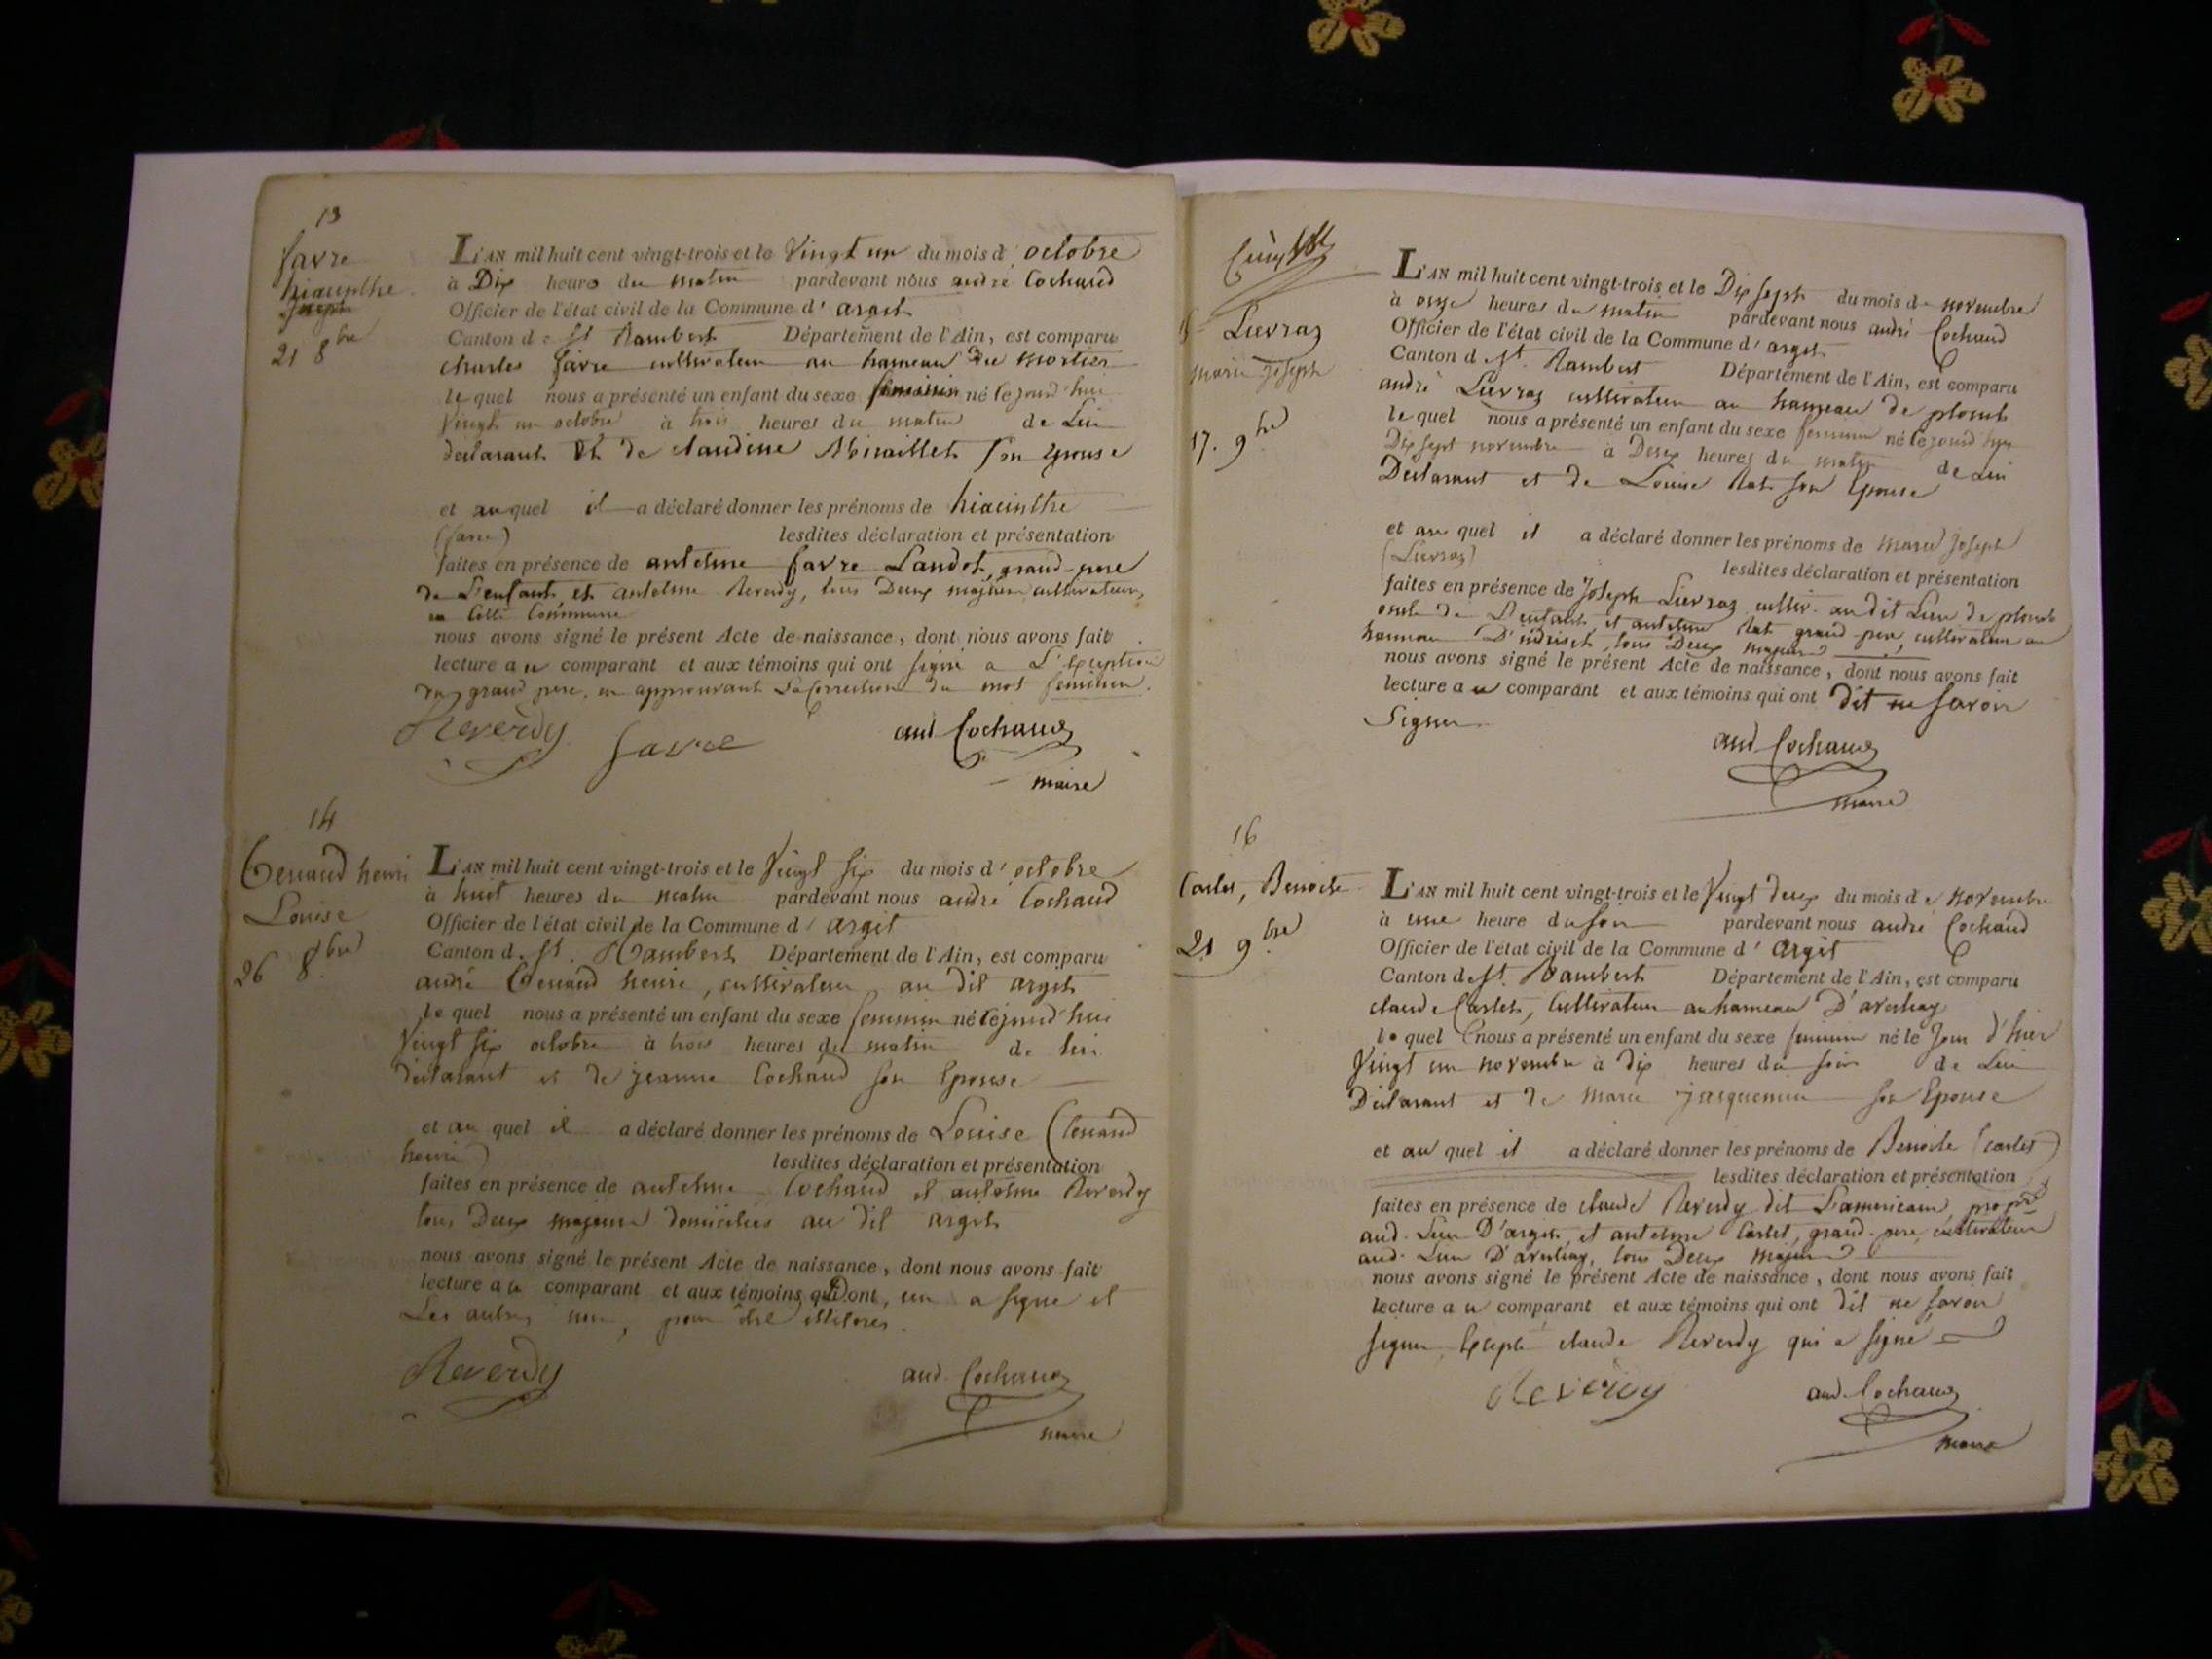 13
favre
hiacinthe
21 8bre
L'AN mil huit cent vingt-trois et le vingt un du mois d'octobre
à Dix heures du matin pardevant nous andré Cochaud
Officier de l'état civil de la Commune d'argit
Canton de St Rambert Département de l'Ain, est comparu
charles favre cultivateur au hameau du mortier
lequel nous a présenté un enfant du sexe feminin né lejourd'hui
vingt un octobre à trois heures du matin de Lui
declarant et de claudine Miraillet son epouse
et auquel il a déclaré donner les prénoms de hiacinthe
(favre) lesdites déclaration et présentation
faites en présence de antelme favre Landot, grand-pere
de L'enfant, et antelme Reverdy, tous Deux majeurs cultivateurs
en Cette Commune
nous avons signé le présent Acte de naissance, dont nous avons fait
lecture au comparant et aux témoins qui ont signé a L'exception
du grand pere, en approuvant La Correction du mot feminin.
Reverdy favre and Cochaud
maire
14
henri
Louise
26 8bre
L'AN mil huit cent vingt-trois et le Vingt six du mois d'octobre
à huit heures du matin pardevant nous andré Cochaud
Officier de l'état civil de la Commune d'argit
Canton d. St. Rambert Département de l'Ain, est comparu
andré henri, cultivateur au dit argit
lequel nous a présenté un enfant du sexe feminin né lejourd'hui
Vingt six octobre à trois heures du matin de lui
declarant et de jeanne Cochaud son Epouse
et au quel il a déclaré donner les prénoms de Louise
henri) lesdites déclaration et présentation
faites en présence de antelme Cochaud et antelme Reverdy
tous Deux majeurs domiciliés au dit argit
nous avons signé le présent Acte de naissance, dont nous avons fait
lecture au comparant et aux témoins qui ont, un a signé et
Les autres non, pour être illitérés.
Reverdy and. Cochaud
maire
Lievraz
marie joseph
17. 9bre
L'AN mil huit cent vingt-trois et le Dix sept du mois de novembre
à onze heures du matin pardevant nous andré Cochaud
Officier de l'état civil de la Commune d'argit
Canton d St. Rambert Département de l'Ain, est comparu
andré Lievraz cultivateur au hameau de plomb
lequel nous a présenté un enfant du sexe feminin né lejourd'hui
Dix sept novembre à Deux heures du matin de Lui
Declarant et de Louise Rat son Epouse
et au quel il a déclaré donner les prénoms de marie Joseph
(Lievraz) lesdites déclaration et présentation
faites en présence de Joseph Lievraz cultiv. au dit Lieu de plomb
oncle de L'enfant, et antelme Rat grand-pere, cultivateur au
hameau tous Deux majeurs
nous avons signé le présent Acte de naissance, dont nous avons fait
lecture au comparant et aux témoins qui ont Dit ne savoir
Signer.
and Cochaud
maire
16
Carlet, Benoite
21 9bre
L'AN mil huit cent vingt-trois et le Vingt deux du mois de novembre
à une heure du soir pardevant nous andré Cochaud
Officier de l'état civil de la Commune d'argit
Canton de St. Rambert Département de l'Ain, est comparu
claude Carlet, Cultivateur au hameau
lequel nous a présenté un enfant du sexe feminin né le Jour d'hier
Vingt un novembre à dix heures du soir de Lui
Declarant et de Marie jacquemin son Epouse
et au quel il a déclaré donner les prénoms de Benoite (Carlet)
lesdites déclaration et présentation
faites en présence de claude Reverdy dit L'americain, propre
aud. Lieu D'argit, et antelme Carlet, grand-pere, cultivateur
aud. Lieu tous Deux majeurs
nous avons signé le présent Acte de naissance, dont nous avons fait
lecture au comparant et aux témoins qui ont dit ne savoir
signer Excepté claude Reverdy qui a signé
Reverdy and. Cochaud
maire